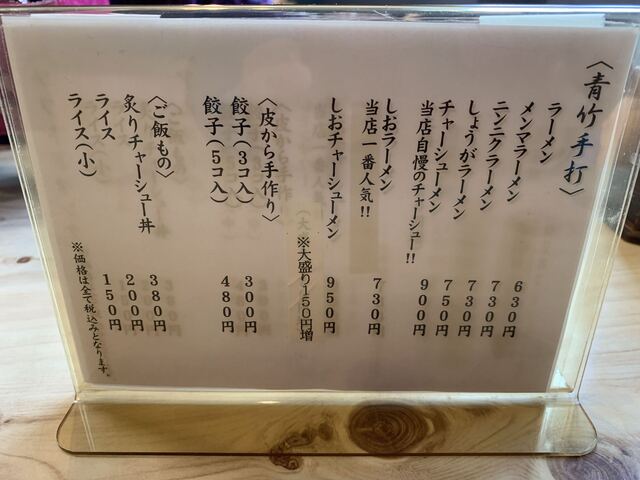 〈青竹手打〉
ラーメン 630円
メンマラーメン 730円
ニンニクラーメン 730円
しょうがラーメン 750円
チャーシューメン 900円
当店自慢のチャーシュー!!
しおラーメン 730円
当店一番人気!!
しおチャーシューメン 950円
※大盛り150円増
〈皮から手作り〉
餃子(3コ入) 300円
餃子(5コ入) 480円
〈ご飯もの〉
炙りチャーシュー丼 380円
ライス 200円
ライス(小) 150円
※価格は全て税込みとなります。